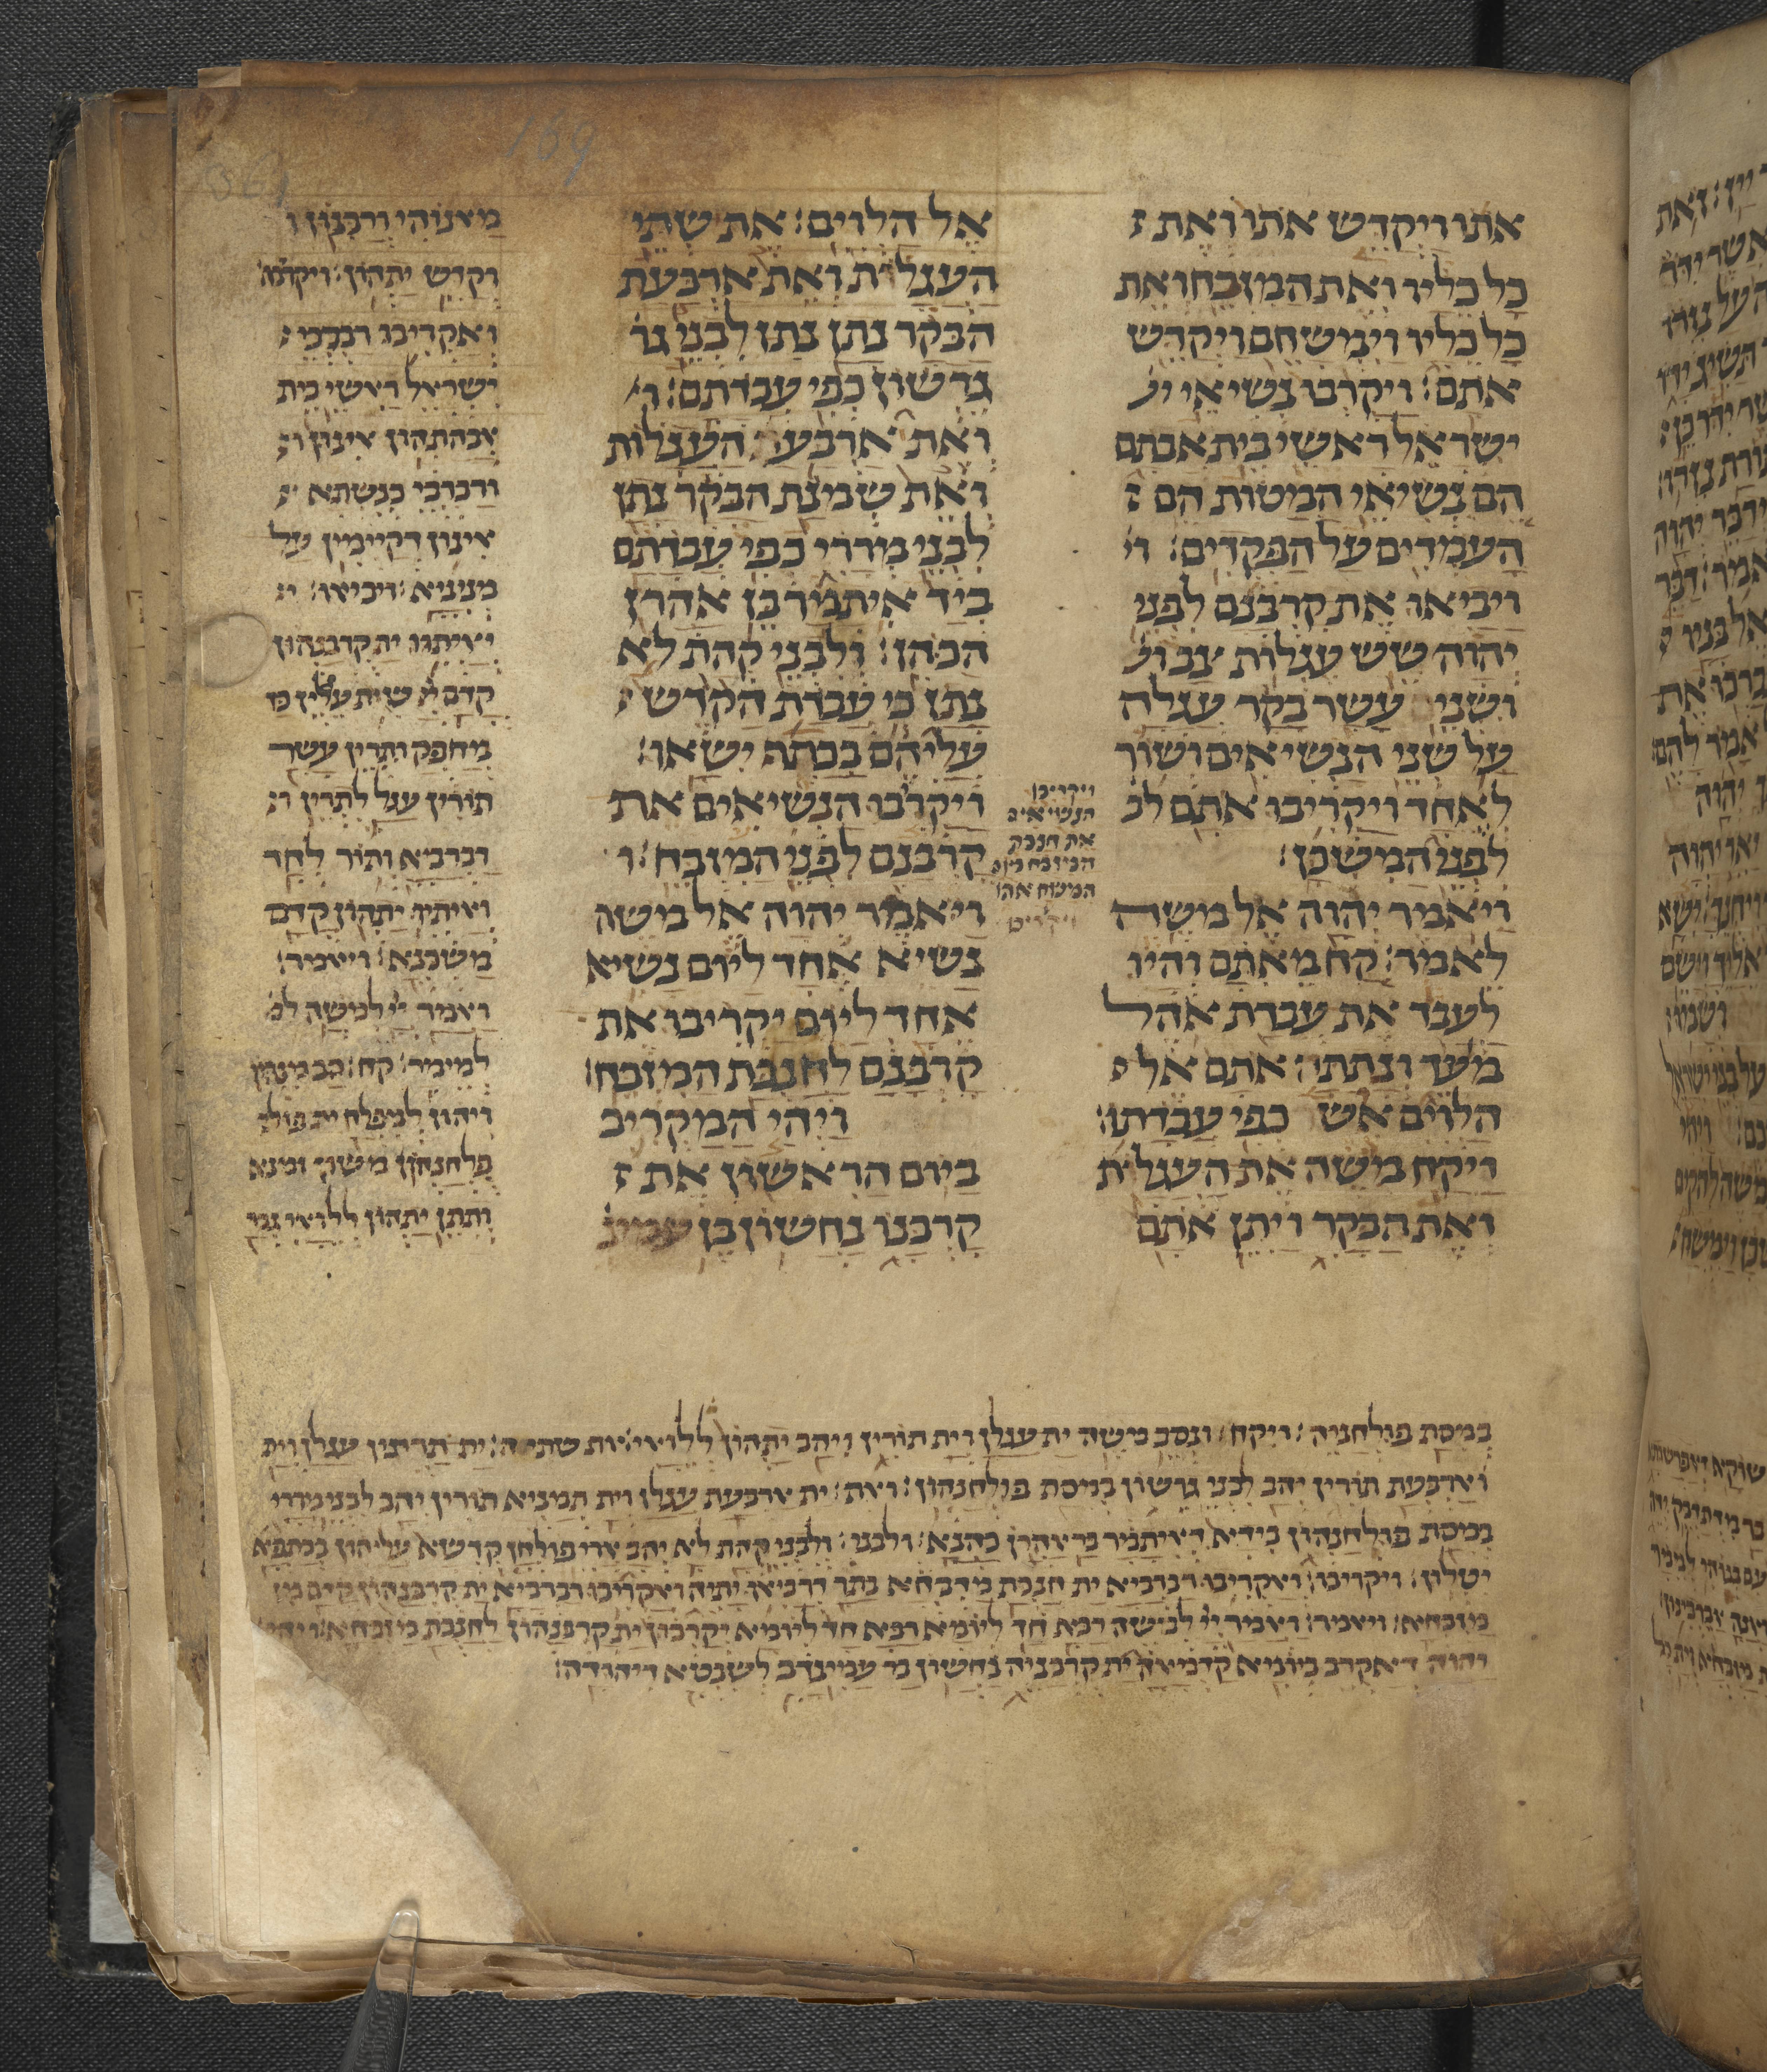 אתו ויקדש אתו ואת
כל כליו ואת המזבח ואת
כל כליו וימשחם ויקדש
אתם׃ ויקרבו נשיאי יש
ישראל ראשי בית אבתם
הם נשיאי המטות הם
העמדים על הפקדים׃ וי
ויביאו את קרבנם לפני
יהוה שש עגלות צב וש
ושני עשר בקר עגלה
על שני הנשיאים ושור
לאחד ויקריבו אתם לפ
לפני המשכן׃
ויאמר יהוה אל משה
לאמר׃ קח מאתם והיו
לעבד את עבדת אהל
מעד ונתתה אתם אל
הלוים איש כפי עבדתו׃
ויקח משה את העגלת
ואת הבקר ויתן אתם
אל הלוים׃ את שתי
העגלות ואת ארבעת
הבקר נתן נתן לבני גר
גרשון כפי עבדתם׃ ו
ואת ארבע העגלות
ואת שמנת הבקר נתן
לבני מררי כפי עבדתם
ביד איתמר בן אהרן
הכהן׃ ולבני קהת לא
נתן כי עבדת הקדש
עליהם בכתף ישאו׃
ויקרבו הנשיאים את
קרבנם לפני המזבח׃ ו
ויאמר יהוה אל משה
נשיא אחד ליום נשיא
אחד ליום יקריבו את
קרבנם לחנכת המזבח׃
ויהי המקריב
ביום הראשון את
קרבנו נחשון בן עמינ
ויקריבו
הנשיאים
את חנכת
המזבח ביום
המשח אתו
ויקריבו
מאנוהי ורבנון ו
וקדש יתהון׃ ויקרבו
ואקריבו רברבי
ישראל ראשי בית
אבהתהון אינון ר
רברבי כנשתא
אינון דקיימין על
מניניא׃ ויביאו׃ וי
ואיתיו ית קרבנהון
קדם יי שית עגלין כד
מחפן ותרין עשר
תורין עגל לתרין ר
רברביא ותור לחד
ואיתיו יתהון קדם
משכנא׃ ויאמר׃
ואמר יי למשה למ
למימר׃ קח׃ סב מנהון
ויהון למפלח ית פולח
פלחן משכן זמנא
ותתן יתהון לליואי גבר
כמסת פולחניה׃ ויקח׃ ונסב משה ית עגלן וית תורין ויהב יתהון לליואי׃ את שתי ׃ ית תרתין עגלן וית
וארבעת תורין יהב לבני גרשון כמסת פולחנהון׃ ואת׃ ית ארבעת עגלן וית תמניא תורין יהב לבני מררי
כמסת פולחנהון בידא דאיתמר בר אהרן כהנא׃ ולבני׃ ולבני קהת לא יהב ארי פולחן קדשא עליהון בכתפא
יטלון׃ ויקריבו׃ ואקריבו רברביא ית חנכת מדבחא בתר דרביאו יתיה ואקריבו רברביא ית קרבנהון קדם מד
מזבחא׃ ויאמר׃ ואמר יי למשה רבא חד ליומא רבא חד ליומא יקרבון ית קרבנהון לחנכת מזבחא׃ ויהי׃
והוה דאקרב ביומא קדמאה ית קרבניה נחשון בר עמינדב לשבטא דיהודה׃